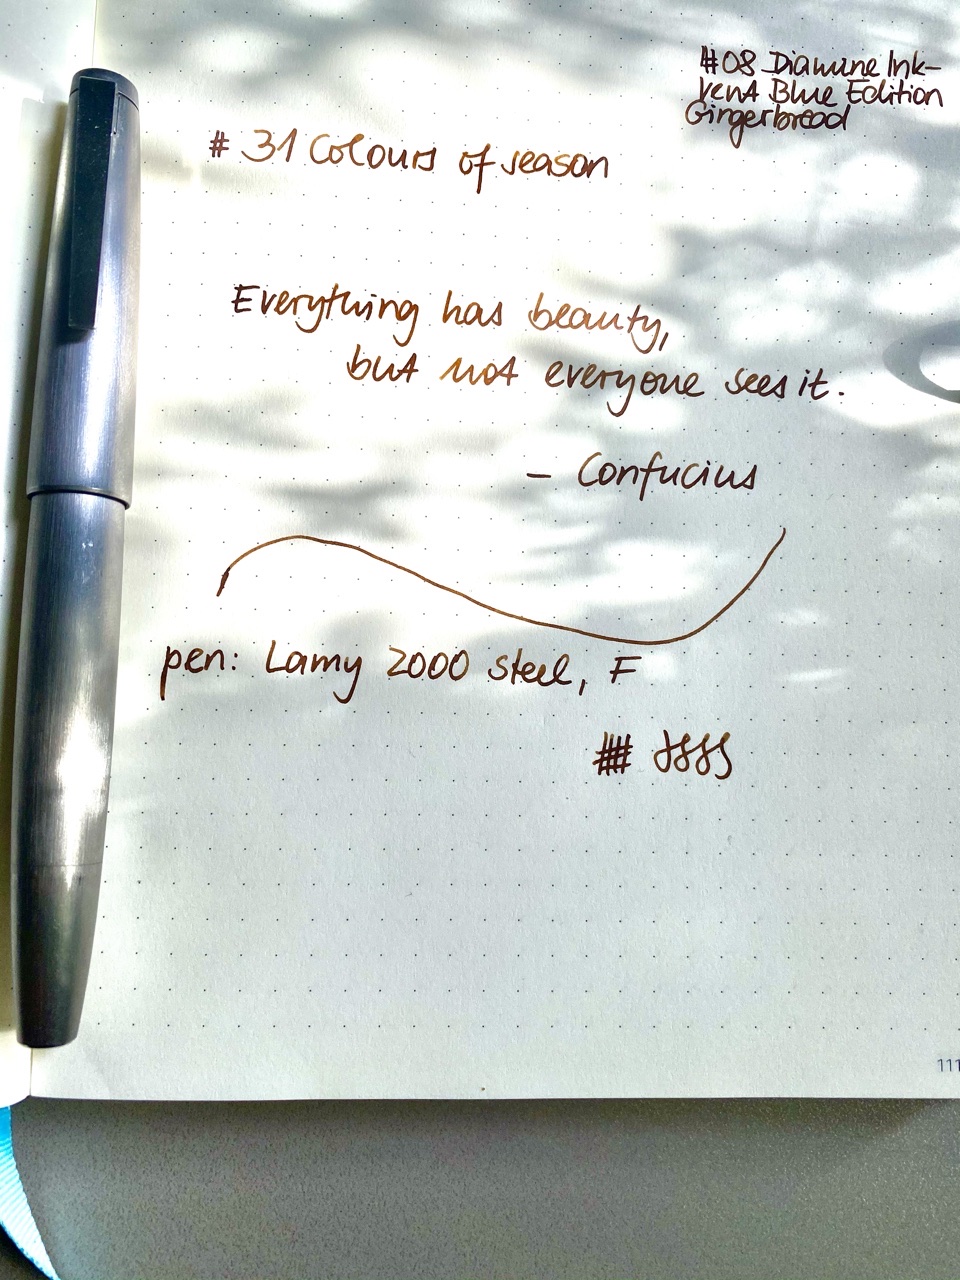 #08 Diamine Ink-
vent Blue Edition
Gingerbread
# 31 Colours of season
Everything has beauty,
but not everyone sees it.
– Confucius
pen: Lamy 2000 steel, F
111